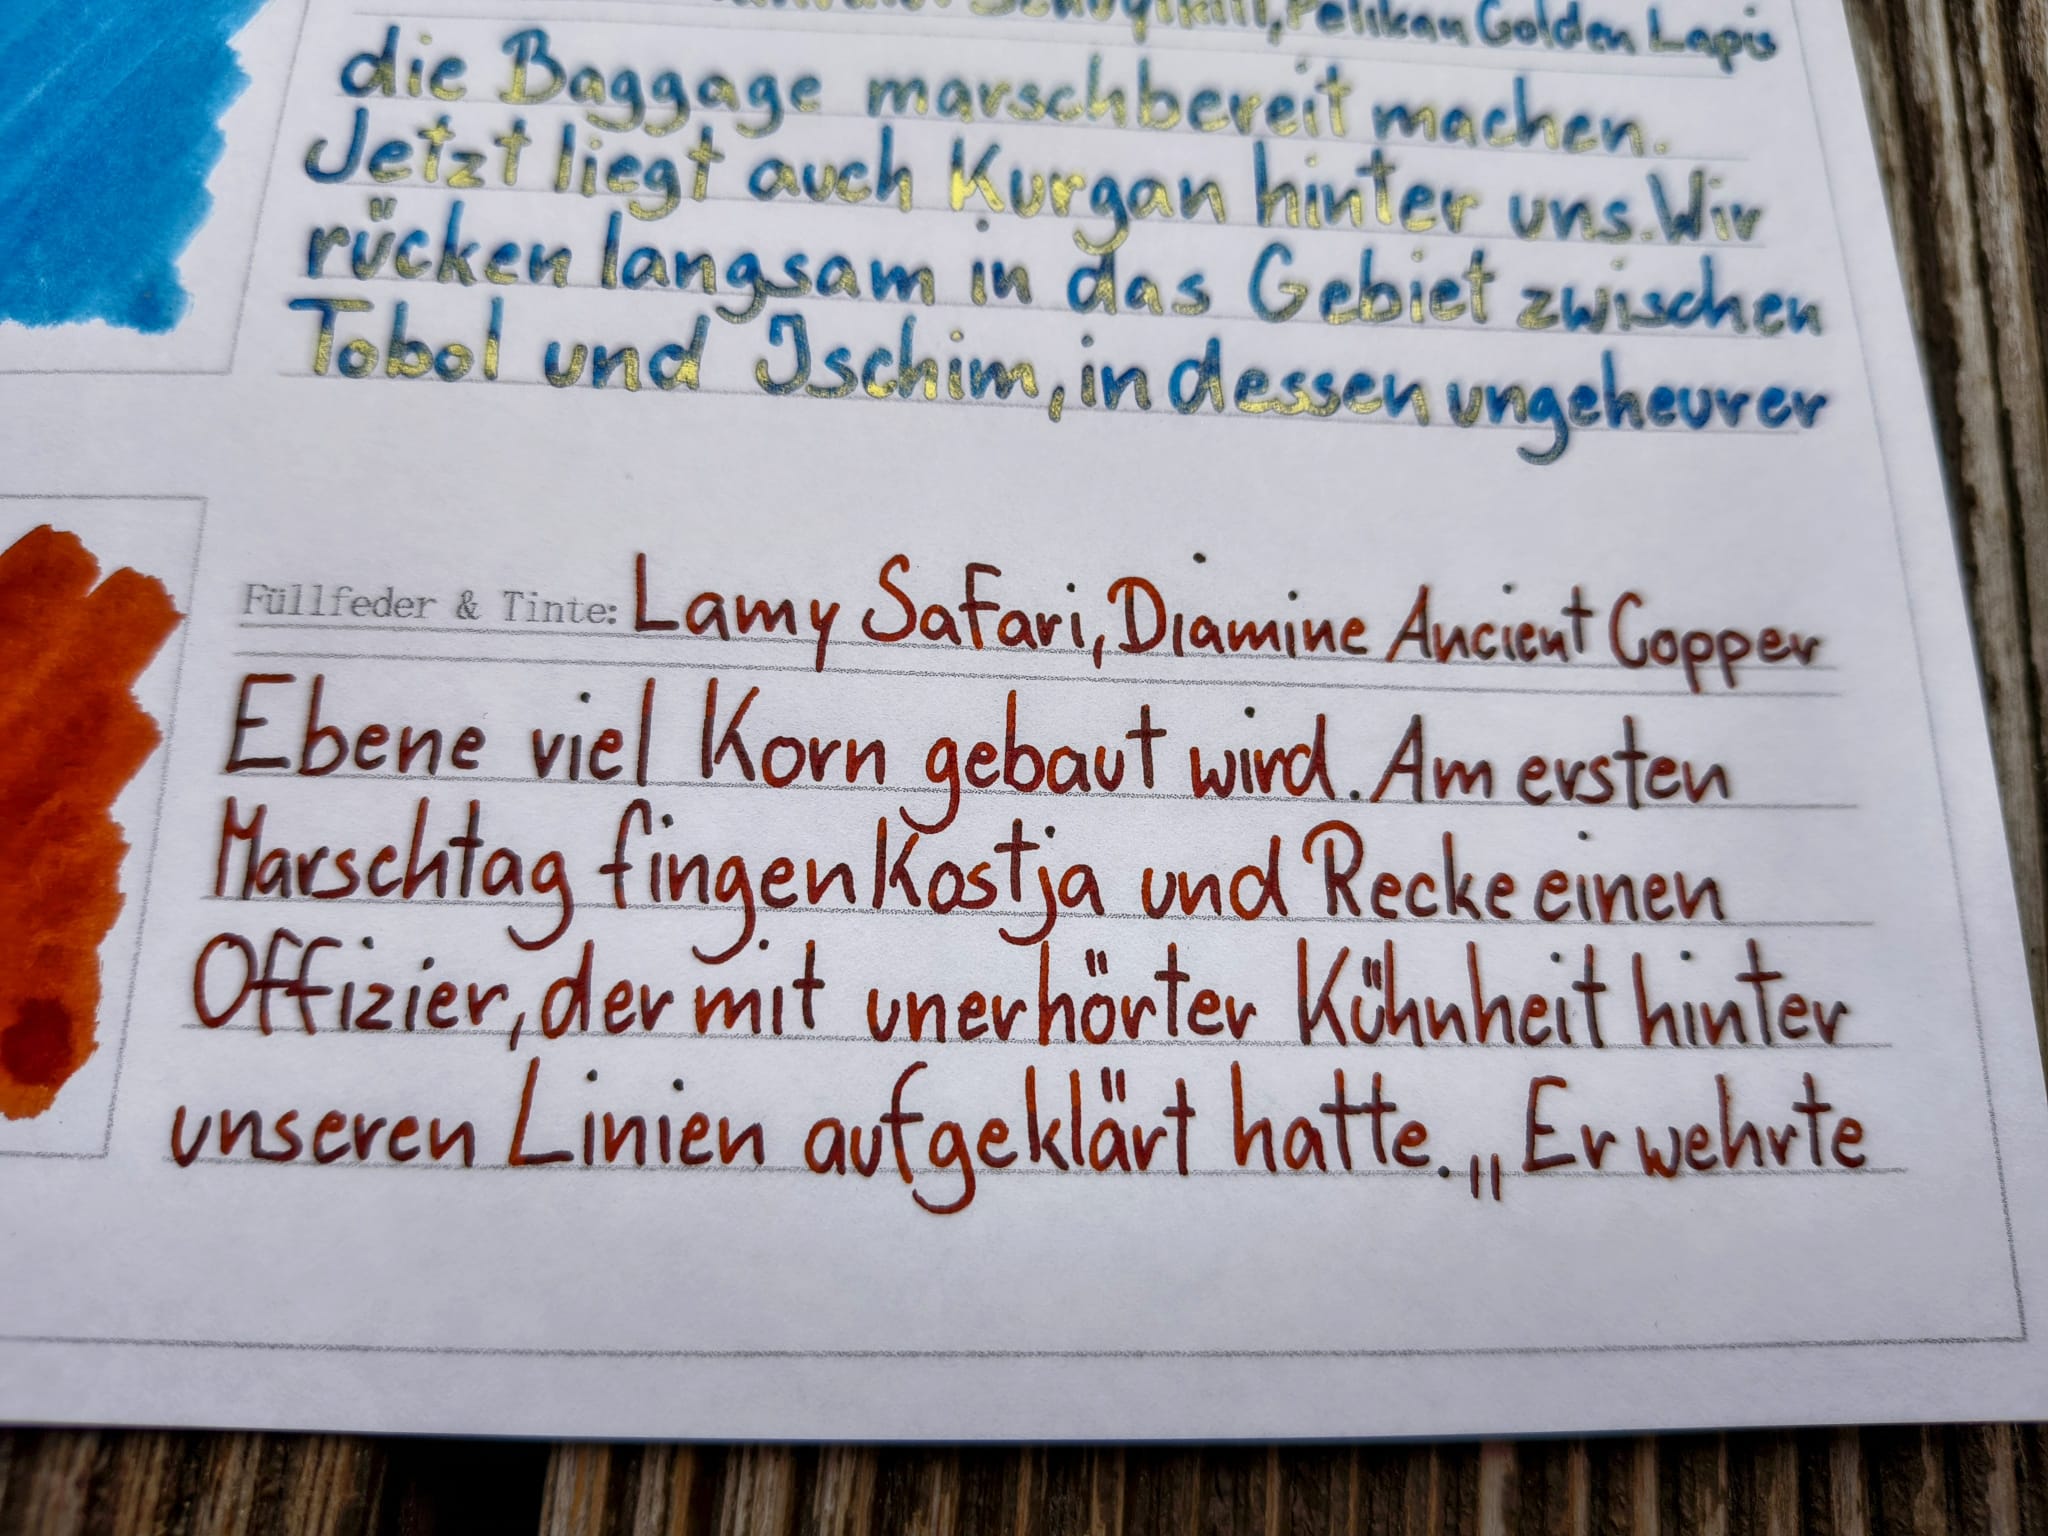 Pelikan Golden Lapis
die Baggage marschbereit machen.
Jetzt liegt auch Kurgan hinter uns. Wir
rücken langsam in das Gebiet zwischen
Tobol und Ischim, in dessen ungeheurer
Füllfeder & Tinte: Lamy Safari, Diamine Ancient Copper
Ebene viel Korn gebaut wird. Am ersten
Marschtag fingen Kostja und Recke einen
Offizier, der mit unerhörter Kühnheit hinter
unseren Linien aufgeklärt hatte. „Er wehrte